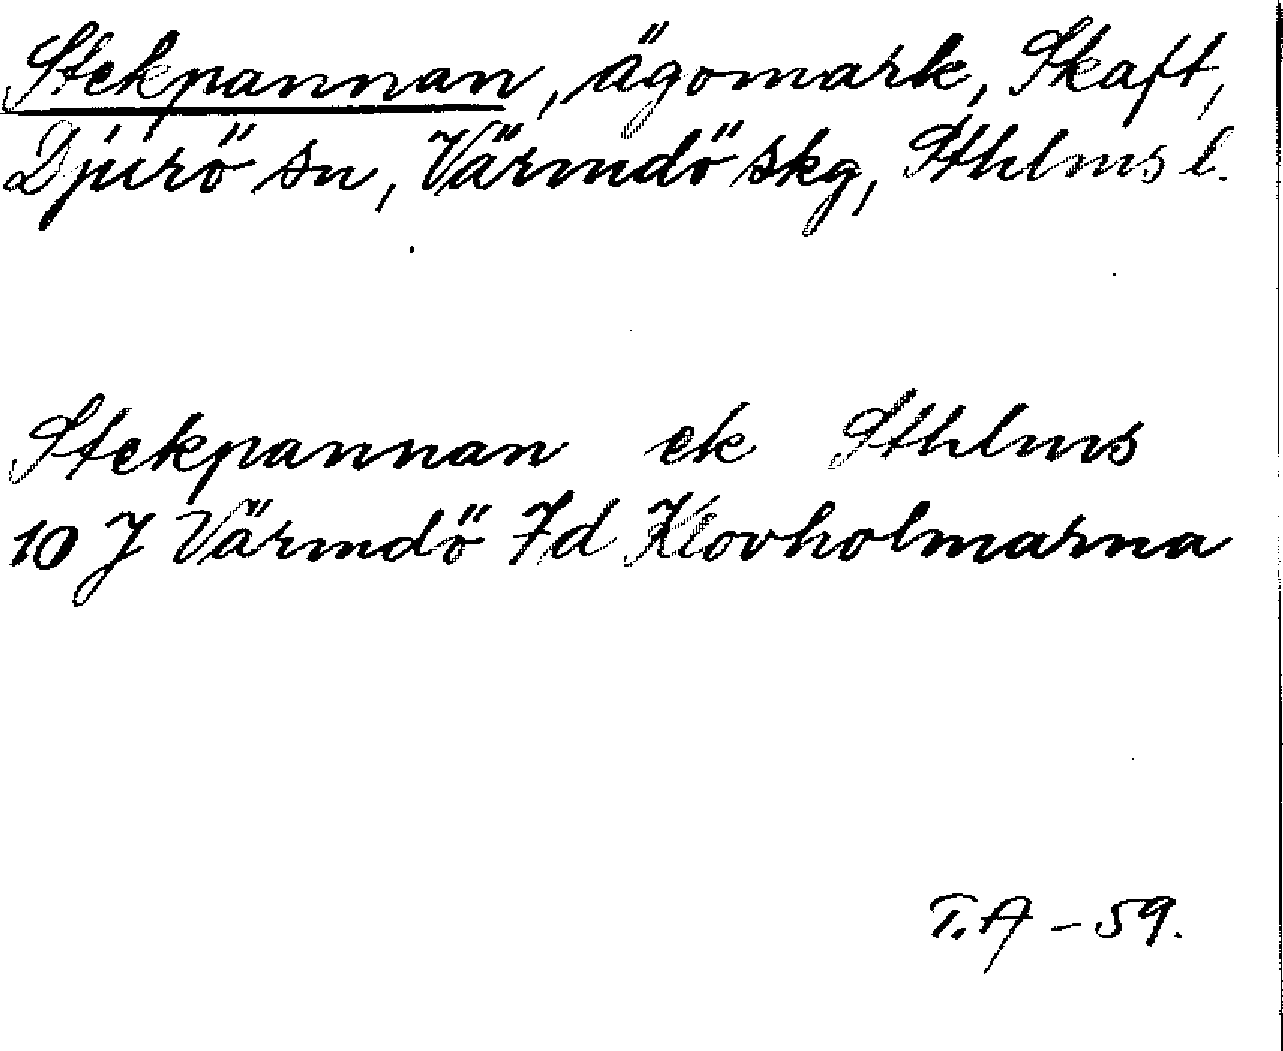 Stekpannan, ägomark, Skaft,
Djurö sn, Värmdö skg, Sthlms l.
Stekpannan ek Sthlms
10 J Värmdö 7d Klovholmarna
T.A - 59.